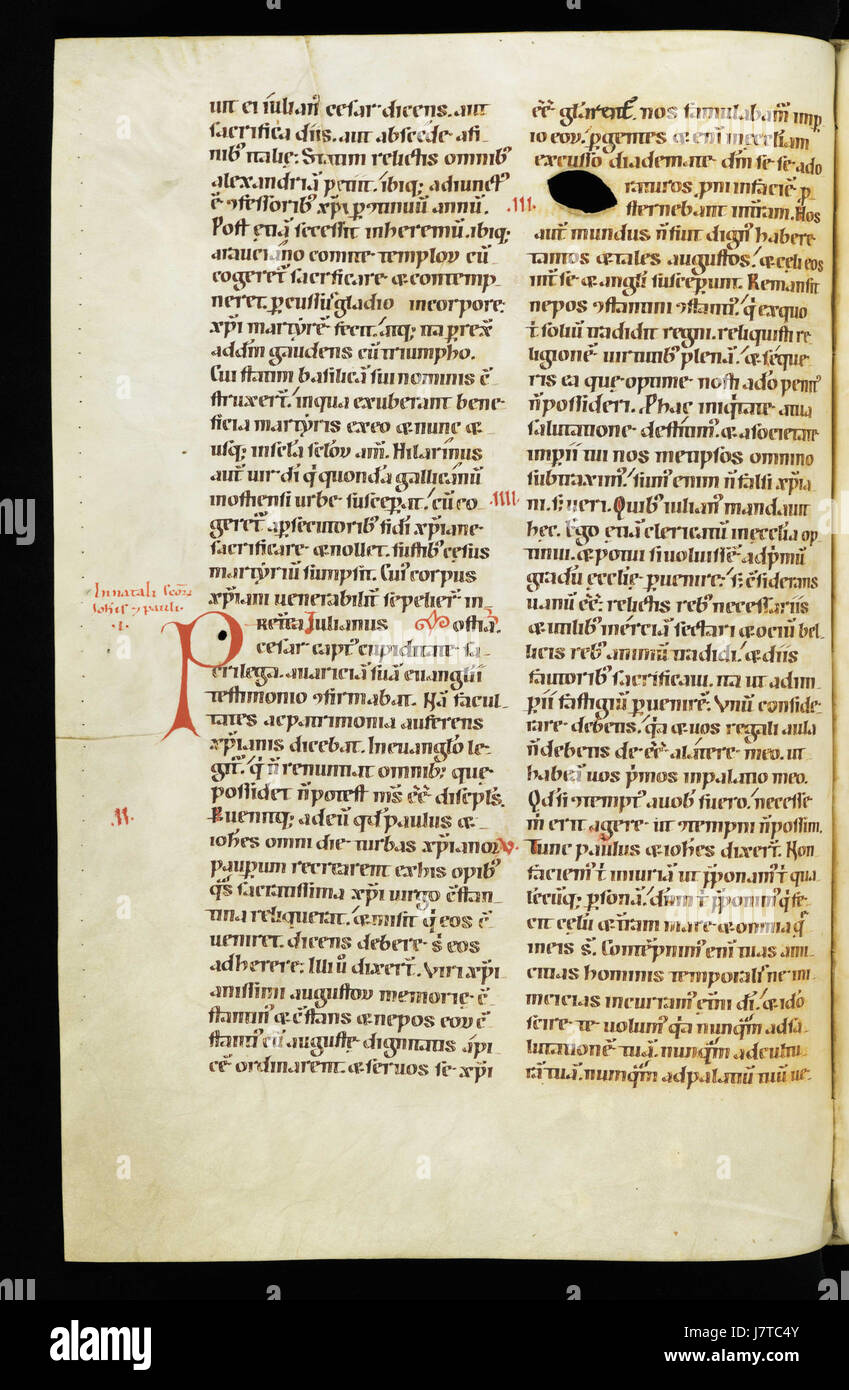 uit ei iulian᷒ cesar. dicens. aut
sacrifica diis. aut abscede a fi
nib᷒ italie. Statim relictis omnib᷒
alexandriā petiit. ibiq; adiunct᷒
ē ꝯfessorib᷒ xp̄i ꝑ ꝯtinuū annū.
Post etiā secessit in heremū. ibiq;
a rauciano comite templor̄ cū
cogeret᷒ sacrificare & contemp
neret. ꝑcussus gladio in corpore
xp̄i martyrē fecit. itaq; ita ꝑrex᷒
ad dn̄m gaudens cū triumpho.
Cui statim basilicā sui nominis c̄
struxer̄t. in qua exuberant bene
ficia martyris ex eo & nunc &
usq; in scl̄a scl̄or̄ am̄. Hilarinus
aut̄ uir dī q̇ quondā gallicanū
in ostiensi urbe susceꝑat. cū co
geret᷒ a ꝑsecutorib᷒ fidi xp̄iane
sacrificare & nollet. fustib᷒ cesus
martyriū sumpsit. Cui᷒ corpus
xp̄iani uenerabilit̄ sepelier̄t in
Innatali scōꝝ
Iohīs ⁊ pauli
.I.
Pretea Iulianus ostiā.
cesar capt᷒ cupiditate sa
crilega. auariciā suā euangl̄ii
testimonio ꝯfirmabat. Nā facul
tates ac patrimonia auferens
xp̄ianis dicebat. In euangl̄o le
git᷒. q̇ n̄ renuntiat omnib; que
possidet n̄ potest ms̄ eē discipl̄s.
.II.
Ꝑuenitq; ad eū qd̄ paulus &
iohēs omni die turbas xp̄ianor̄
pauꝑum recrearent ex his opib᷒
q̄s sacratissima xp̄i uirgo c̄stan
tina reliquerat. & misit q̇ eos c̄
ueniret. dicens debere s̄ eos
adherere. Illi ū dixer̄t. Viri xp̄i
anissimi augustor̄ memorie c̄
stantin᷒ & c̄stans & nepos eor̄ c̄
stanti᷒ cū auguste dignitatis api
cē ordinarent & seruos se xp̄i
eē gl̄arent᷒. nos famulabam᷒ imp
io eor̄. ꝑgentes & eni᷒ in ecclīam
excusso diademate dn̄m se se ado
raturos. pni in faciē ꝓ
.III.
sternebant in tr̄am. Hos
aut̄ mundus n̄ fuit dign᷒ habere
tamos & tales augustos. & celi eos
int̄ se & angl̄i susceperunt. Remansit
nepos ꝯstantini ꝯstanti᷒. q̇ ex quo
t̄ soluū tradidit regni. reliquisti re
ligionē uirtutib᷒ plenā. & seque
ris ea que optime nosti a dō penit᷒
n̄ possideri. Ꝓ hac iniqtate a tua
salutatione destitim᷒. & a societate
impii tui nos metipsos omnino
subtraxim᷒. sum᷒ enim n̄ falsi xp̄ia
.IIII.
ni. sꝫ ueri. Quib᷒ iulian᷒ mandauit
hec. Ego etiā clericatū in ecclīa op
tinui. & potui si uoluissē ad p̄mū
gradū ecclīe ꝑuenire. sꝫ c̄siderans
uanū eē. relictis reb᷒ necessariis
& utilib᷒ inerciā sectari & ociū bel
licis reb᷒ animū tradidi. & diis
fautorib᷒ sacrificaui. ita ut ad im
ꝑii fastigiū ꝑuenirē. Vnū conside
rare debens. qa & uos regali aula
n̄ debetis de eē a latere meo. ut
habeā uos p̄mos in palatio meo.
Qd̄ si ꝯtempt᷒ a uob᷒ fuero. necesse
m̄ erit agere ut ꝯtempni n̄ possim.
.V.
Tunc paulus & iohēs dixer̄t. Non
facien᷒ t᷒ iniuriā ut p̄ponam᷒ t᷒ qua
lecūq; ꝑsonā. dn̄m t᷒ p̄ponim᷒ q̇ fe
cit celū & tr̄am mare & omnia q̄
in eis s̄. Contempnim᷒ eni᷒ tuas ami
citias hominis temporalis ne ini
micicias incurram᷒ et̄ni dī. & idō
scire te uolum᷒ qa nunqm̄ ad sa
lutationē tuā. nunqm̄ ad cultu
rā tuā. numqm̄ ad palatiū tuū ue
alamy
Image ID: J7TC4Y
www.alamy.com